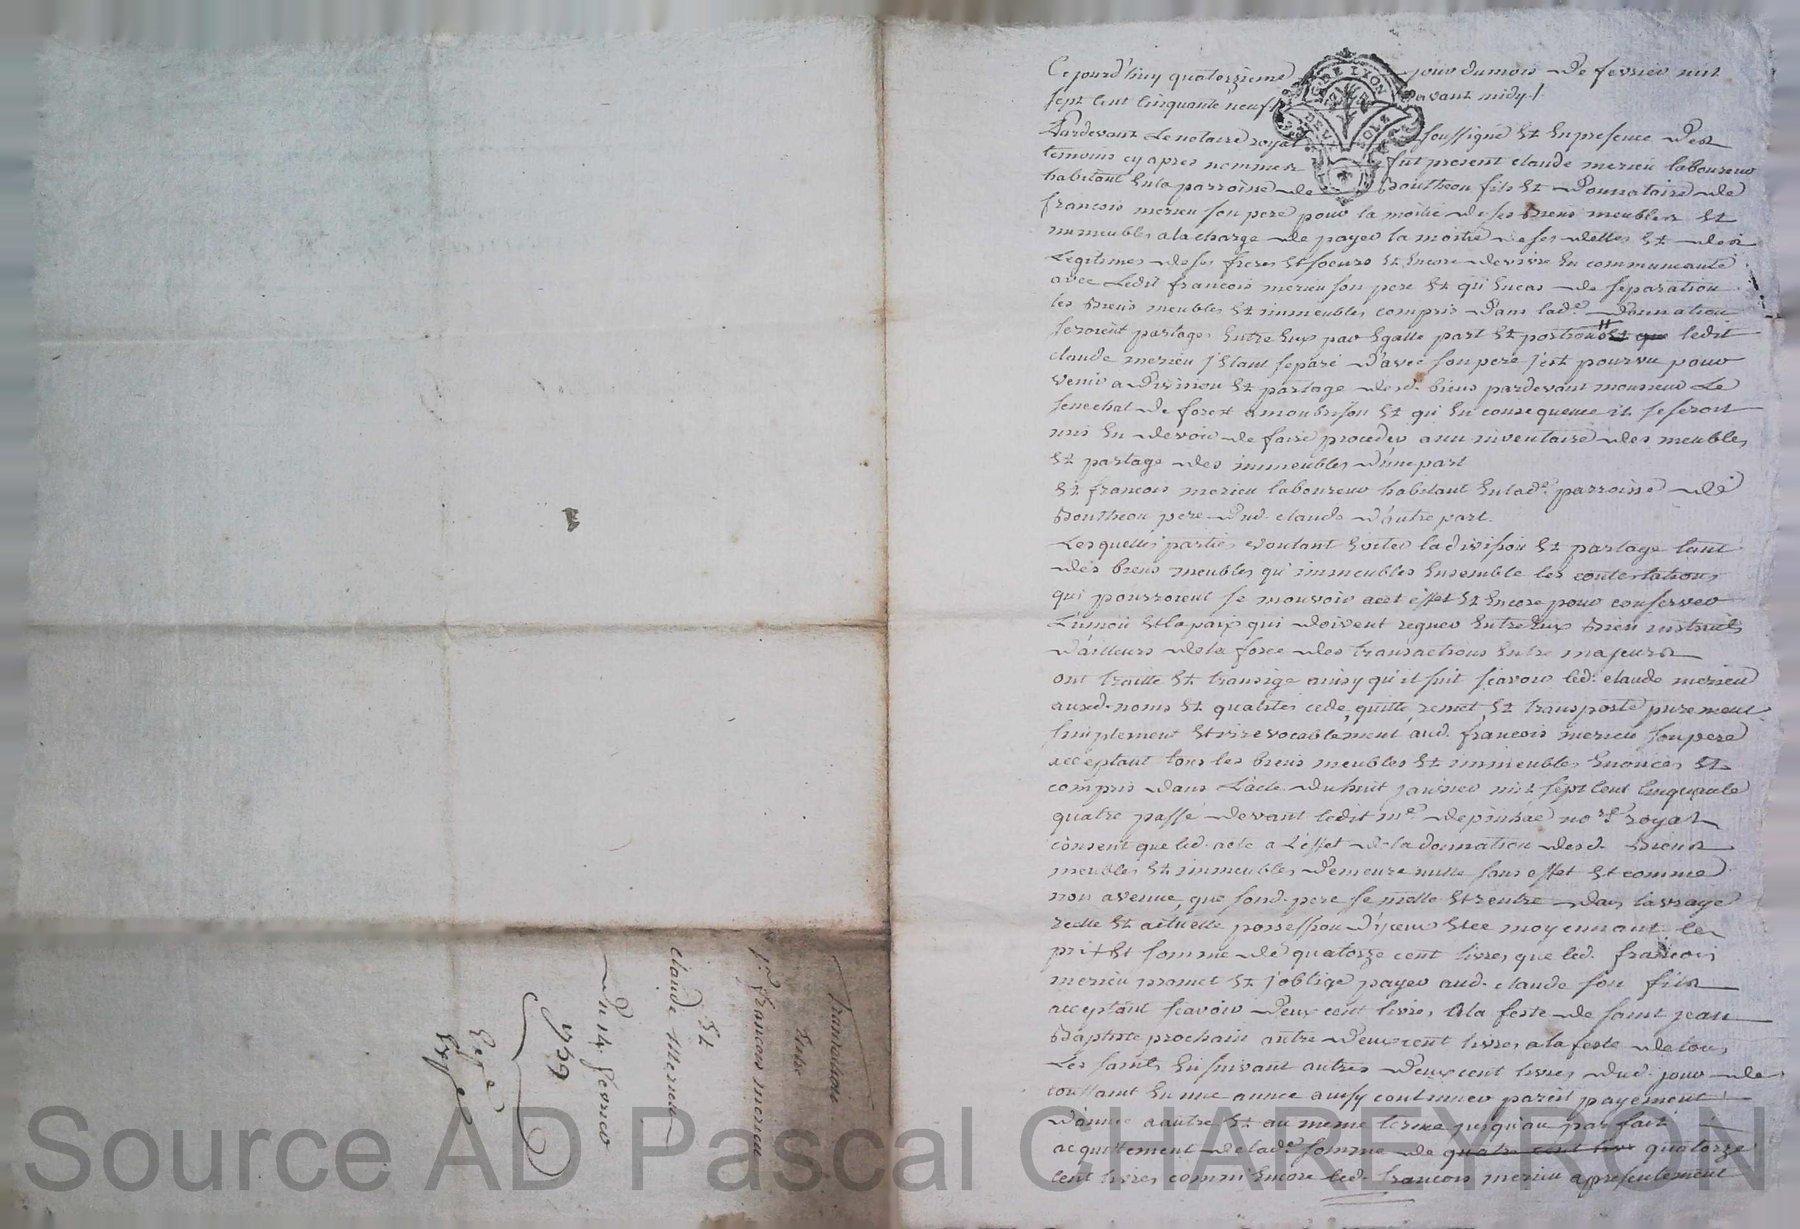 Ce jourd'huy quatorzieme jour du mois de fevrier mil
sept cent cinquante neuf avant midy /.
Pardevant le notaire royal soussigné et en presence des
temoins cy apres nommes fut present claude merieu laboureur
habitant en la parroisse de Boutheon fils et donnataire de
francois merieu son pere pour la moitié de ses biens meubles et
immeubles a la charge de payer la moitié de ses dettes et des
legitimes de ses freres et soeurs et encore de vivre en communeauté
avec ledit francois merieu son pere et qu'en cas de separation
les biens meubles et immeubles compris dans lad.e donnation
seroient partagés entre eux par egalle part et portion et que ledit
claude merieu s'etant separé d'avec son pere s'est pourvu pour
venir a division et partage desd. biens pardevant monsieur le
senechal de forest a monbrison et qu'en consequence il se seroit
mis en devoir de faire proceder a un inventaire des meubles
et partage des immeubles d'une part
et francois merieu laboureur habitant en lad.e parroisse de
Boutheon pere dud. claude d'autre part.
Lesquelles parties voulant eviter la division et partage tant
des biens meubles qu'immeubles ensemble les contestations
qui pourroient se mouvoir a cet effet et encore pour conserver
l'union et la paix qui doivent regner entre eux bien instruits
d'ailleurs de la force des transactions entre majeurs
ont traitté et transigé ainsy qu'il suit scavoir led. claude merieu
auxd. noms et qualités cede, quitte, remet, et transporte purement
simplement et irrevocablement aud. francois merieu son pere
acceptant tous les biens meubles et immeubles enoncés et
compris dans l'acte du huit janvier mil sept cent cinquante
quatre passé devant ledit m.e depinhac no.re royal
consent que led. acte a l'effet de la donnation desd. biens
meubles et immeubles demeure nulle sans effet et comme
non avenue, que sond. pere se mette et rentre dans la vraye
reelle et actuelle possession d'yceux et ce moyennant le
prix et somme de quatorze cent livres que led. francois
merieu promet et s'oblige payer aud. claude son fils
acceptant scavoir deux cent livres a la feste de saint jean
Baptiste prochain autre deux cent livres a la feste de tous
les saints en suivant autres deux cent livres dud. jour de
toussaint en une année ainsy continuer pareil payement
d'année a autre et au meme terme jusqu'au parfait
acquitement de lad.e somme de quatre cent livr quatorze
cent livres comm'encore led. francois merieu a presentement
GÉN DE LYON
DEUX SOLZ
Transaction
Entre
S.r francois merieu
Et
claude Merieu
Du 14. fevrier
1759
Source AD Pascal CHAREYRON